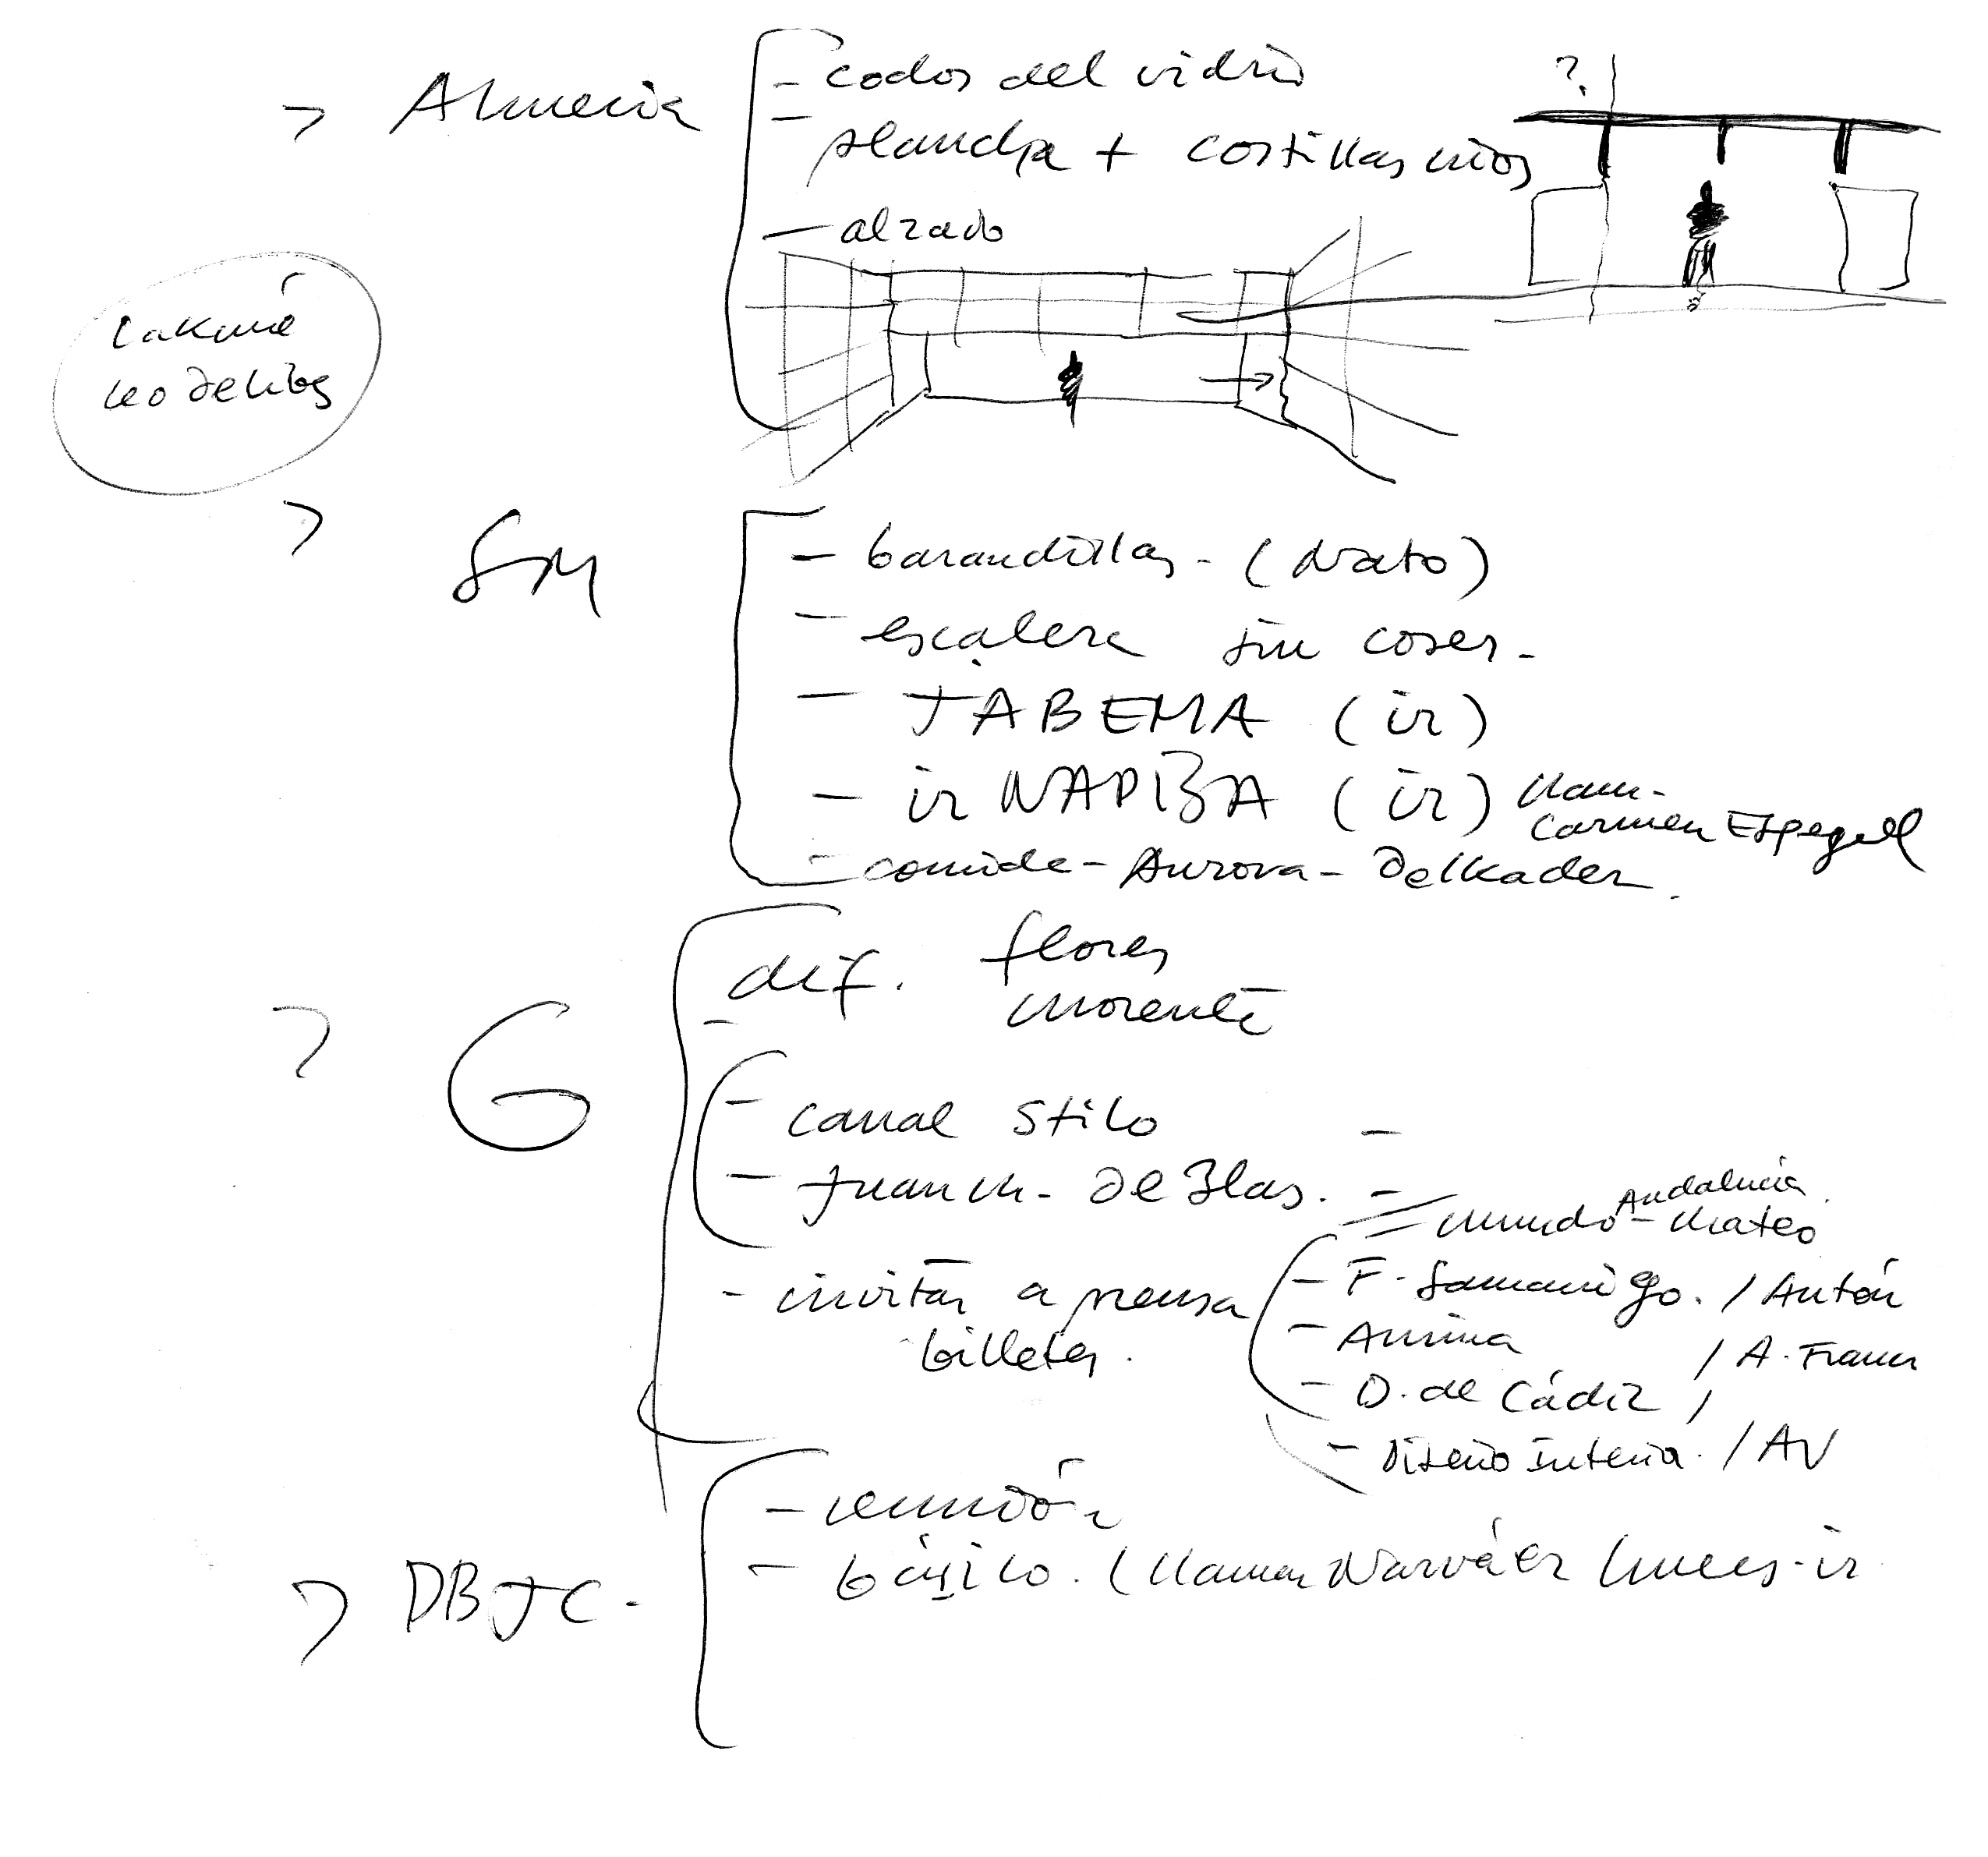 > Almería
- codos del vidrio
- plancha + costillas
- alzado
?
Lakmé
> SM
- barandillas - (Nato)
- escalera sin coser -
- JABEMA (ir)
- ir NAPISA (ir) llam-
Carmen Espegel
- comida - Aurora - Delkader.
> G
- def. flores
morente
- canal Stilo -
- Juan M. de Blas. -
Andalucía
mundo - Mateo
- invitar a prensa
billetes.
- F. Samaniego. / Antón
- / A.
- D. de Cádiz /
- Diseño Interior. / AV
> DBJC -
- reunión
- básico. (llamar Narváez lunes - ir